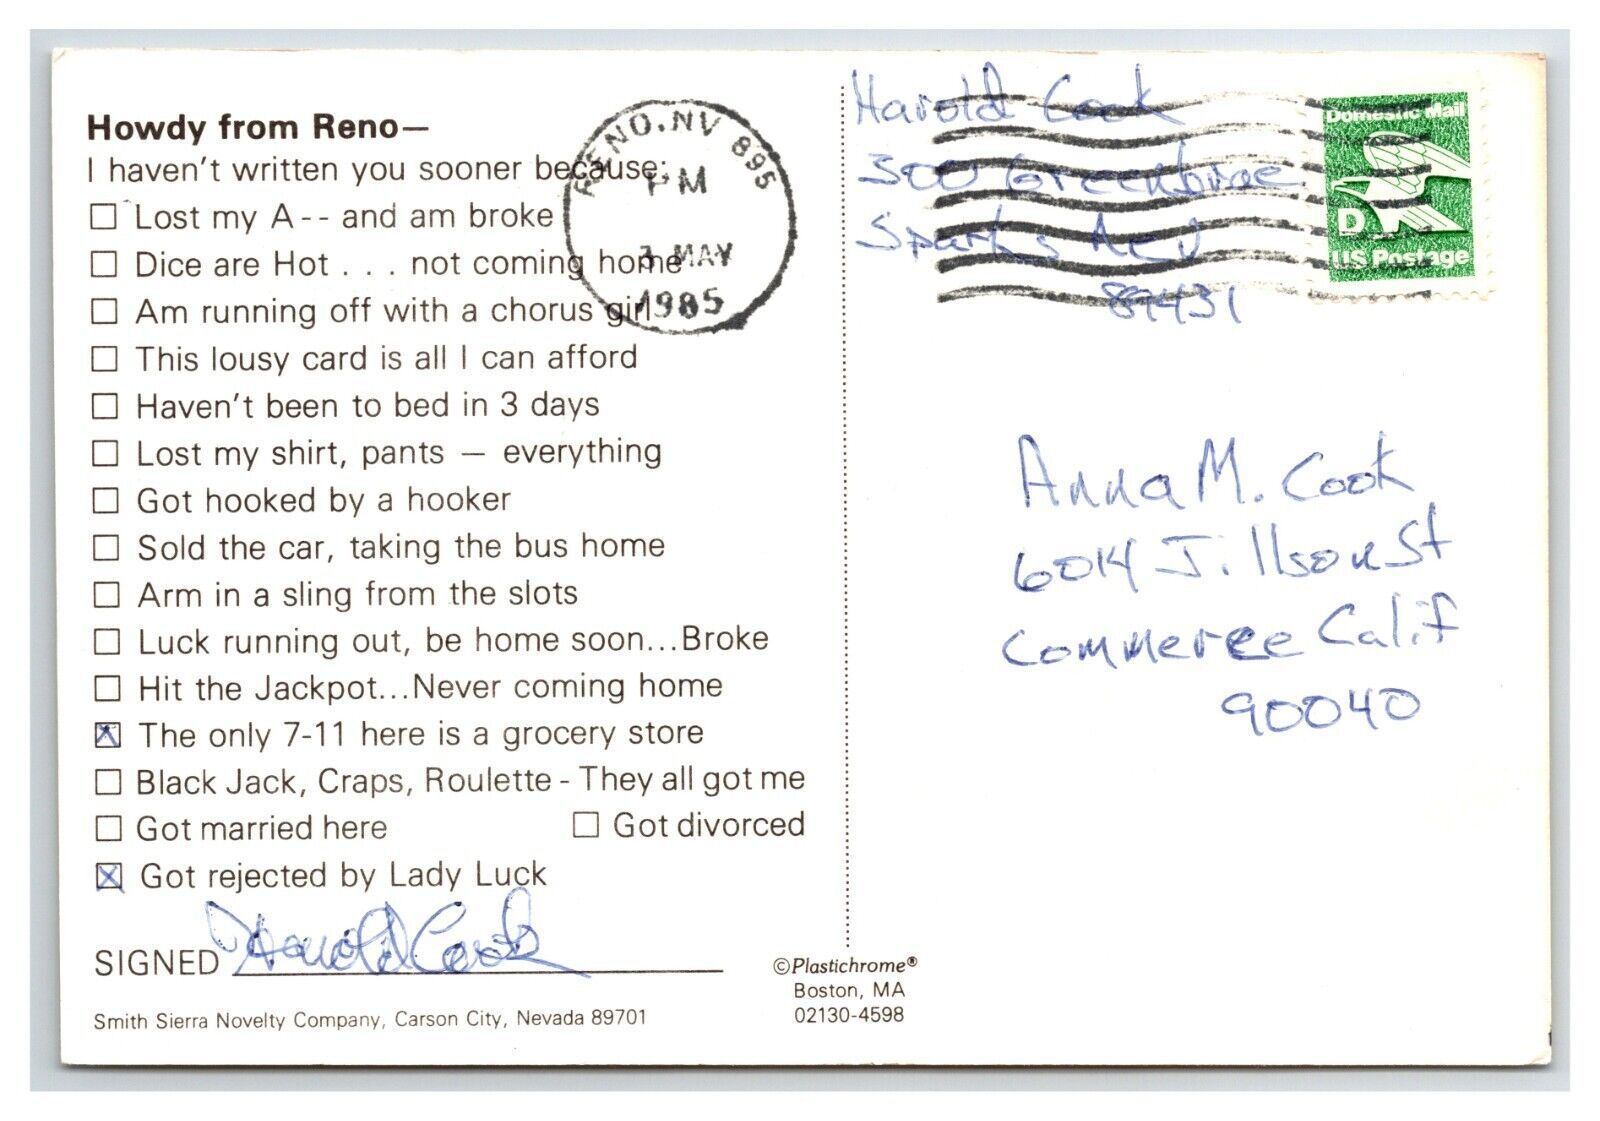 Howdy from Reno—
I haven't written you sooner because:
☐ Lost my A-- and am broke
☐ Dice are Hot . . . not coming home
☐ Am running off with a chorus girl
☐ This lousy card is all I can afford
☐ Haven't been to bed in 3 days
☐ Lost my shirt, pants — everything
☐ Got hooked by a hooker
☐ Sold the car, taking the bus home
☐ Arm in a sling from the slots
☐ Luck running out, be home soon...Broke
☐ Hit the Jackpot...Never coming home
☒ The only 7-11 here is a grocery store
☐ Black Jack, Craps, Roulette - They all got me
☐ Got married here ☐ Got divorced
☒ Got rejected by Lady Luck
SIGNED Harold Cook
Smith Sierra Novelty Company, Carson City, Nevada 89701
©Plastichrome®
Boston, MA
02130-4598
RENO, NV 895
PM
3 MAY
1985
Harold Cook
300 Greenbrae
Sparks Nev
89431
Domestic Mail
D
US Postage
Anna M. Cook
6014 Jillson St
Commerce Calif
90040